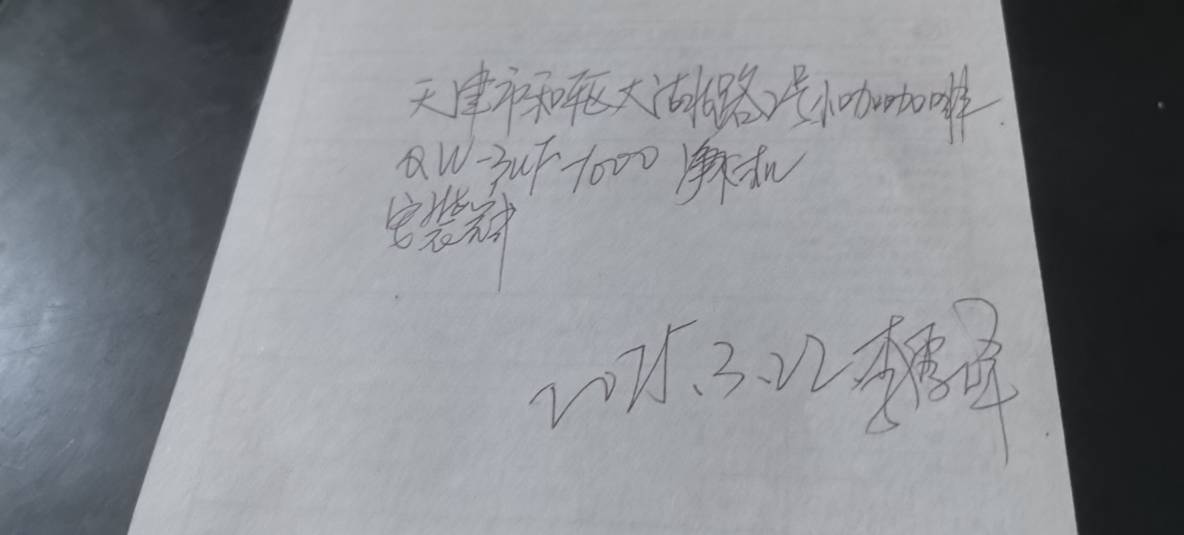 天津市和平区大沽北路2号小咖咖啡
QW-3UF-1000 净水机
安装完毕
2025.3.22 李